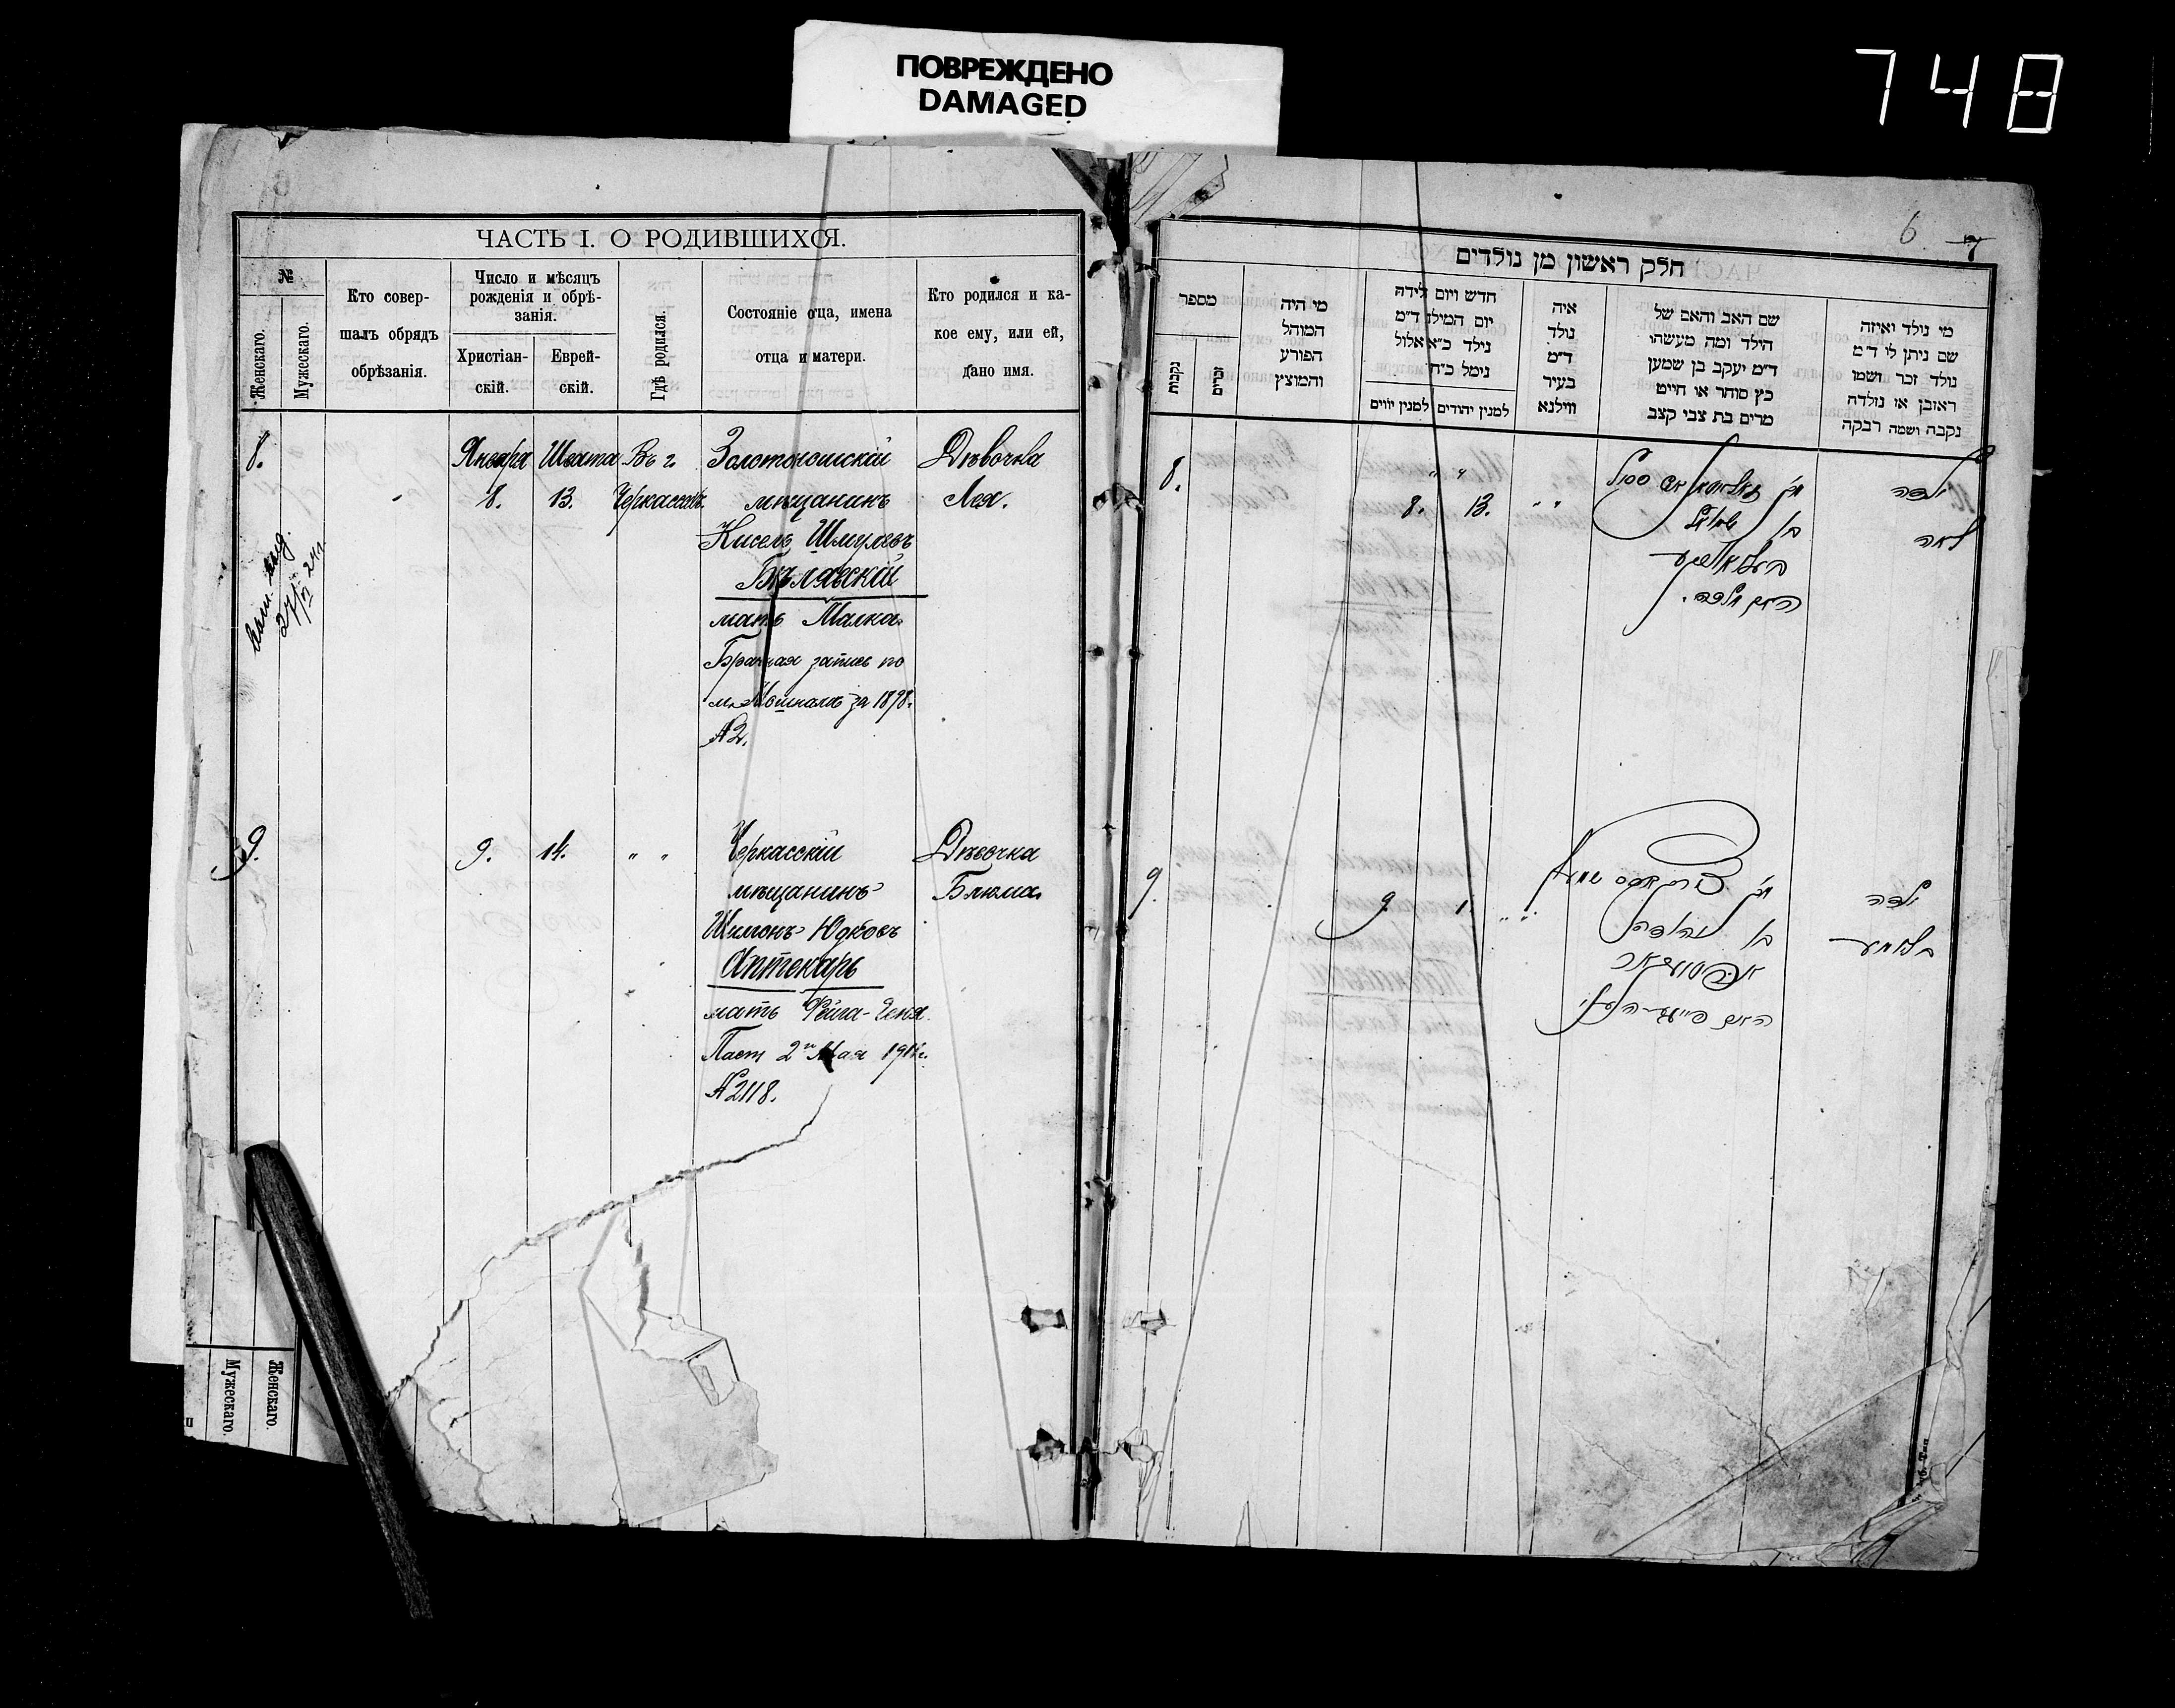 ПОВРЕЖДЕНО
DAMAGED
748
ЧАСТЬ I. О РОДИВШИХСЯ.
№
Женскаго.
Мужескаго.
Кто совер-
шалъ обрядъ
обрѣзанія.
Число и мѣсяцъ
рожденія и обрѣ-
занія.
Христіан-
скій.
Еврей-
скій.
Гдѣ родился.
Состояніе отца, имена
отца и матери.
Кто родился и ка-
кое ему, или ей,
дано имя.
8.
Января
8.
Швата
13.
Въ г.
Черкассахъ.
Золотоношскій
мѣщанинъ
Кисель Шмулевъ
Бѣлявскій
мать Малка.
Брачная запись по
м. за 1898.
№ 2.
Дѣвочка
Лея.
27/VI 24 г.
9.
9.
14.
" "
Черкасскій
мѣщанинъ
Шимонъ Юдковъ
Аптекарь
мать Фейга-Геня
Пасп 2го Мая 191 г.
№ 2118.
Дѣвочка
Блюма.
Мужескаго.
Женскаго.
6 7
חלק ראשון מן נולדים
מספר
נקבות
זכרים
מי היה
המוהל
הפורע
והמוצץ
חדש ויום לידה
יום המילד ד״מ
נילד כ״א אלול
נימל כ״ח
למנין יהודים
למנין יוונים
איה
נולד
ד״מ
בעיר
ווילנא
שם האב והאם של
הילד ומה מעשהו
ד״מ יעקב בן שמען
כץ סוחר או חייט
מרים בת צבי קצב
מי נולד ואיזה
שם ניתן לו ד״מ
נולד זכר ושמו
ראובן או נולדה
נקבה ושמה רבקה
8.
" "
8.
13.
" "
בן שמואל
האם מלכה.
ילדה
לאה
9.
9
1
" "
בן יהודה
ילדה
בלומע